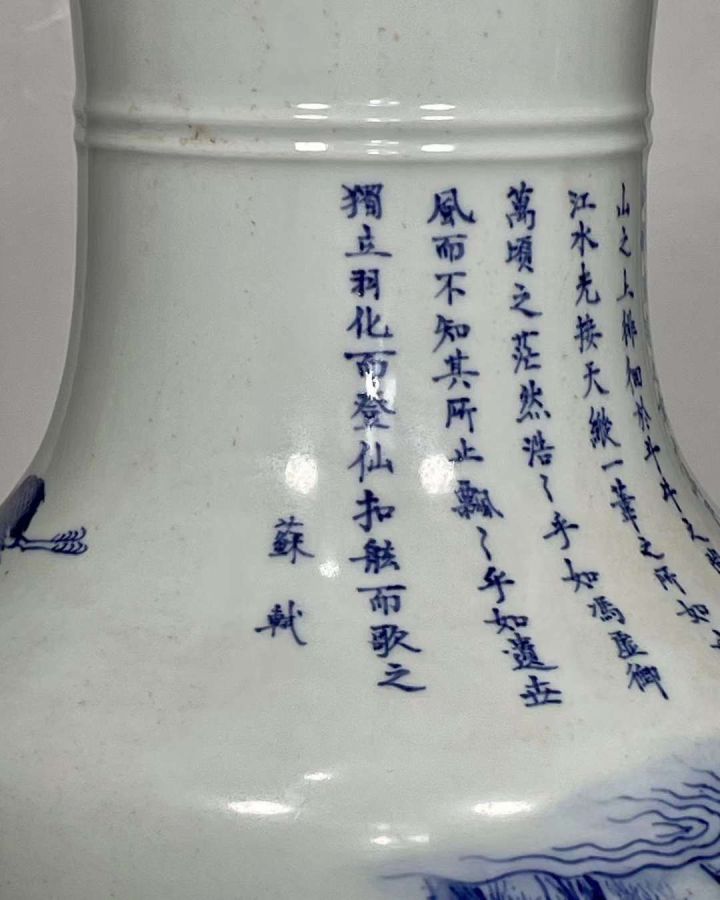 山之上徘徊於斗牛之
江水光接天縱一葦之所如
萬頃之茫然浩〻乎如馮虛御
風而不知其所止飄〻乎如遺世
獨立羽化而登仙扣舷而歌之
蘇軾